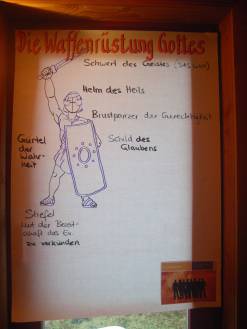 Die Waffenrüstung Gottes
Schwert des Geistes
Helm des Heils
Brustpanzer der Gerechtigkeit
Gürtel
der
Wahr-
heit
Schild des
Glaubens
Stiefel
Mut der Bot-
schaft des Ev.
zu verkünden